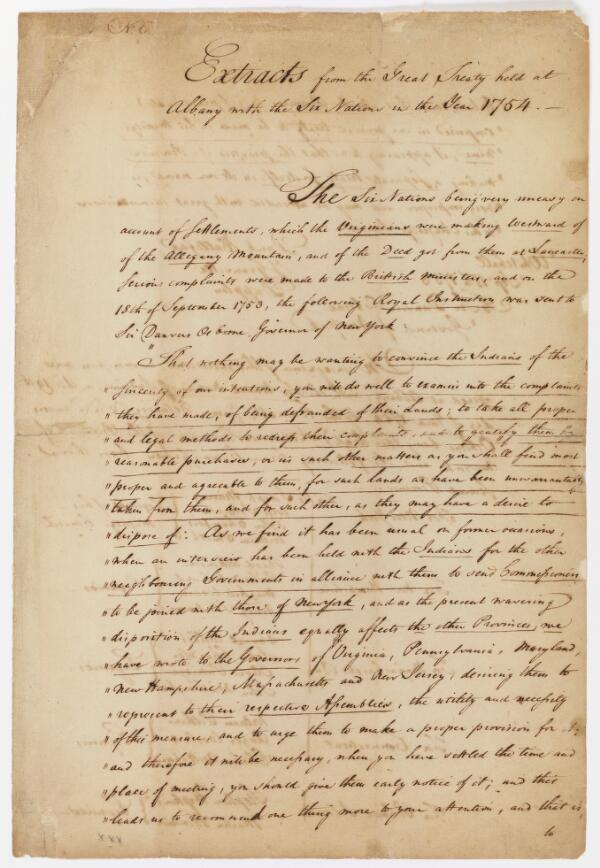 No. 6
Extracts from the Great Treaty held at
Albany with the Six Nations in the Year 1754. —
The Six Nations being very uneasy on
account of Settlements, which the Virginians were making Westward of
of the Allegany Mountain, and of the Deed got from them at Lancaster,
Serious complaints were made to the British ministers, and on the
18th of September 1753, the following Royal Instruction was sent to
Sir Danvers Osborne Governor of New York
"That nothing may be wanting to convince the Indians of the
"sincerity of our intentions, you will do well to examine into the complaints
"they have made, of being defrauded of their Lands; to take all proper
"and legal methods to redress their complaints, and to gratify them by
"reasonable purchases, or in such other matters as you shall find most
"proper and agreeable to them, for such lands as have been unwarrantably
"taken from them, and for such other, as they may have a desire to
"dispose of: As we find it has been usual on former occasions,
"when an interview has been held with the Indians for the other
"neighbouring Governments in alliance with them to send Commissioners
"to be joined with those of New York, and as the present wavering
"disposition of the Indians equally affects the other Provinces, we
"have wrote to the Governors of Virginia, Pennsylvania, Maryland,
"New Hampshire, Massachusetts and New Jersey, desiring them to
"represent to their respective Assemblies, the utility and necessity
"of this measure, and to urge them to make a proper provision for it,
"and therefore it will be necessary, when you have settled the time and
"place of meeting, you should give them early notice of it; and this
"leads us to recommend one thing more to your attention, and that is,
to